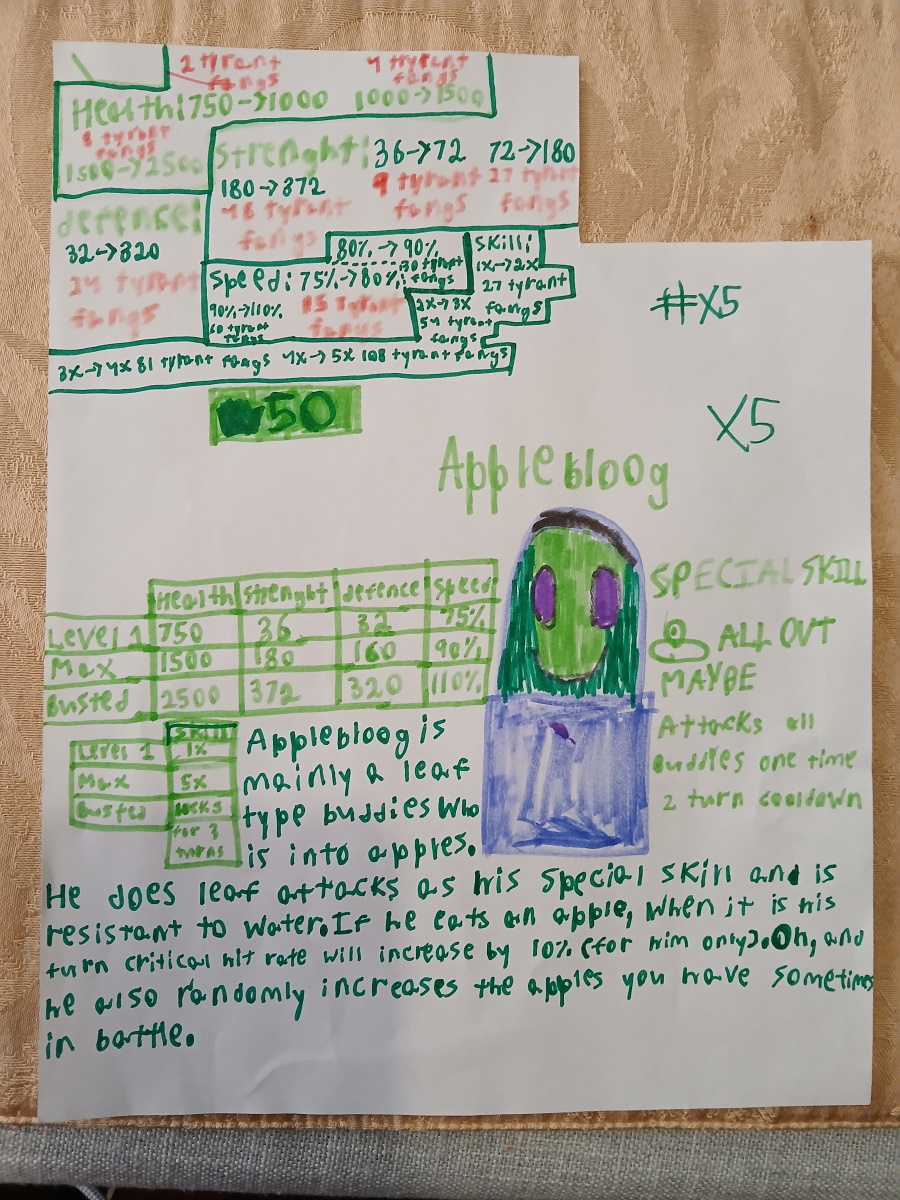 2 tyrant 4 tyrant
fangs fangs
Health: 750→1000 1000→1500
8 tyrant
fangs
1500→2500
Strenght: 36→72 72→180
180→372 9 tyrant 27 tyrant
tyrant fangs fangs
fangs
defence:
32→320
24 tyrant
fangs
80%→90%
30 tyrant
Speed: 75%→80% fangs
90%→110% 15 tyrant
60 tyrant fangs
fangs
Skill:
1x→2x
27 tyrant
fangs
2x→3x
54 tyrant
fangs
3x→4x 81 tyrant fangs 4x→5x 108 tyrant fangs
50
#X5
X5
Applebloog
Health Strenght defence Speed
Level 1 750 36 32 75%
Max 1500 180 160 90%
Busted 2500 372 320 110%
Skill
Level 1 1x
Max 5x
Busted locks
for 3
turns
SPECIAL SKILL
ALL OUT
MAYBE
Attacks all
buddies one time
2 turn cooldown
Applebloog is
mainly a leaf
type buddies who
is into apples.
He does leaf attacks as his special skill and is
resistant to water. If he eats an apple, when it is his
turn critical hit rate will increase by 10% (for him only). Oh, and
he also randomly increases the apples you have sometimes
in battle.